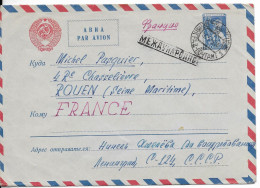 АВИА
PAR AVION
Франция
МЕЖДУНАРОДНОЕ
Куда Michel Pasquier,
4 Rue Chasselièvre,
ROUEN (Seine Maritime),
Кому
FRANCE
Адрес отправителя:
Ленинград, С-124, С.С.С.Р.